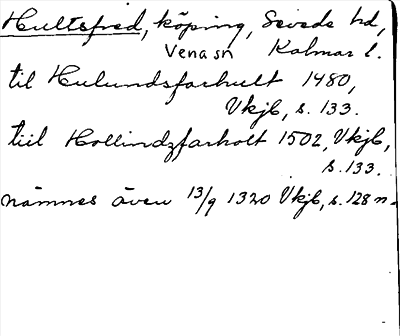 Hultsfred, köping, Sevede hd,
Vena sn Kalmar l.
til Hulundsfarhult 1480,
Vkjb, s. 133.
tiil Hollindzfarholt 1502, Vkjb,
s. 133.
nämnes även 13/9 1320 Vkjb, s. 128 n.